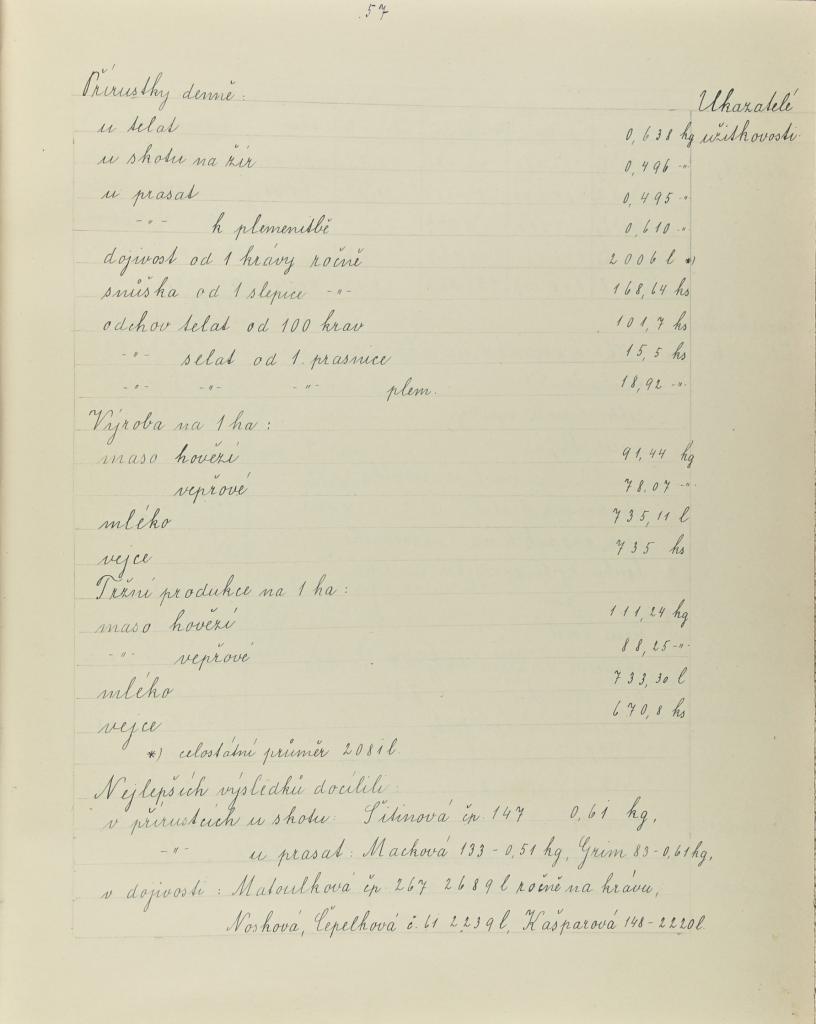 57
Přírustky denně:
Ukazatelé
užitkovosti.
u telat 0,638 kg
u skotu na žír 0,496 -"-
u prasat 0,495 -"-
-"- k plemenitbě 0,610 -"-
dojivost od 1 krávy ročně 2006 l *)
snůška od 1 slepice -"- 168,64 ks
odchov telat od 100 krav 101,7 ks
-"- selat od 1 prasnice 15,5 ks
-"- -"- -"- plem. 18,92 -"-
Výroba na 1 ha:
maso hovězí 91,44 kg
vepřové 78.07 -"-
mléko 735,11 l
vejce 735 ks
Tržní produkce na 1 ha:
maso hovězí 111,24 kg
-"- vepřové 88,25 -"-
mléko 733,30 l
vejce 670,8 ks
*) celostátní průměr 2081 l.
Nejlepších výsledků docílili:
v přírustcích u skotu: Šitinová čp. 147 0,61 kg,
-"- u prasat: Macková 133 - 0,51 kg, Grim 83 - 0,61 kg,
v dojivosti: Matoulková čp. 267 2689 l ročně na krávu,
Nosková, Čepelková č. 61 2239 l, Kašparová 148 - 2220 l.